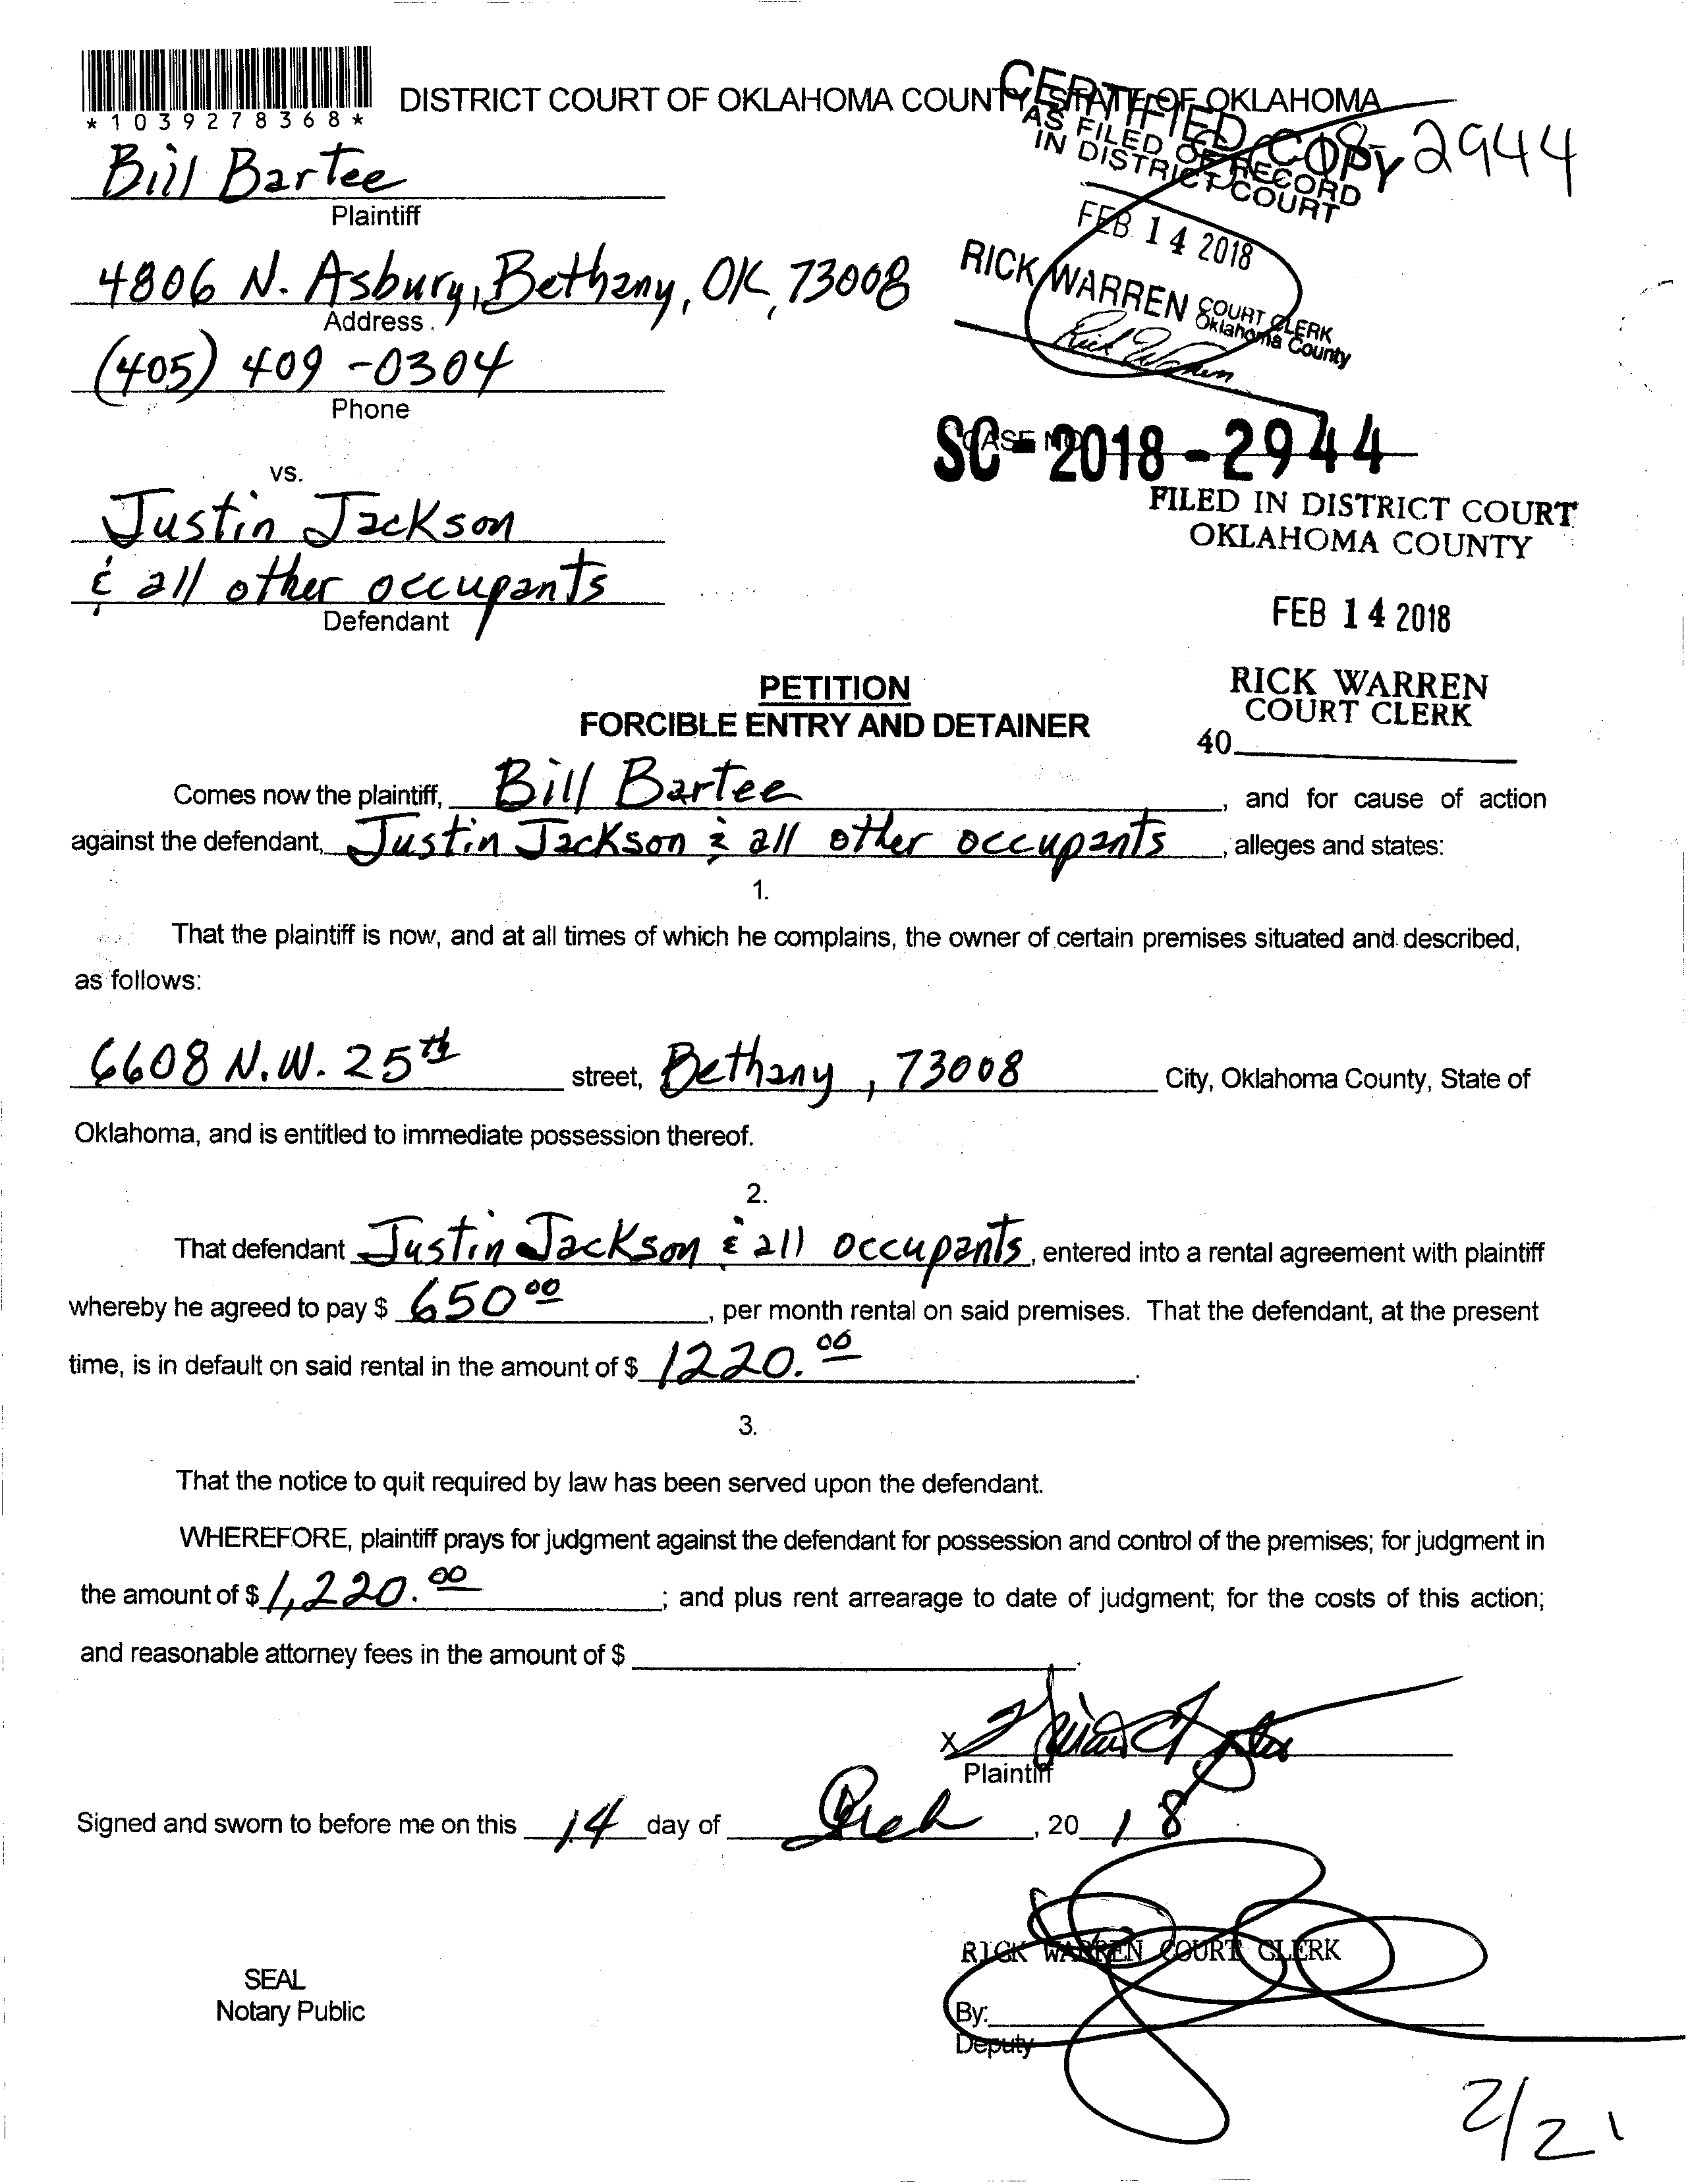 DISTRICT COURT OF OKLAHOMA COUNTY, STATE OF OKLAHOMA
*1039278368*
CERTIFIED COPY
AS FILED OF RECORD
IN DISTRICT COURT
2944
Bill Bartee
Plaintiff
FEB 14 2018
4806 N. Asbury, Bethany, OK, 73008
Address
RICK WARREN COURT CLERK
Oklahoma County
Rick Warren
(405) 409-0304
Phone
CASE NO.
SC-2018-2944
vs.
FILED IN DISTRICT COURT
OKLAHOMA COUNTY
Justin Jackson
& all other occupants
Defendant
FEB 14 2018
PETITION
FORCIBLE ENTRY AND DETAINER
RICK WARREN
COURT CLERK
40
Comes now the plaintiff, Bill Bartee, and for cause of action
against the defendant, Justin Jackson & all other occupants, alleges and states:
1.
That the plaintiff is now, and at all times of which he complains, the owner of certain premises situated and described,
as follows:
6608 N.W. 25th street, Bethany, 73008 City, Oklahoma County, State of
Oklahoma, and is entitled to immediate possession thereof.
2.
That defendant Justin Jackson & all occupants, entered into a rental agreement with plaintiff
whereby he agreed to pay $ 650 00, per month rental on said premises. That the defendant, at the present
time, is in default on said rental in the amount of $ 1220.00.
3.
That the notice to quit required by law has been served upon the defendant.
WHEREFORE, plaintiff prays for judgment against the defendant for possession and control of the premises; for judgment in
the amount of $ 1,220.00; and plus rent arrearage to date of judgment; for the costs of this action;
and reasonable attorney fees in the amount of $
x
Plaintiff
Signed and sworn to before me on this 14 day of , 20 18
RICK WARREN COURT CLERK
SEAL
Notary Public
By:
Deputy
2/21